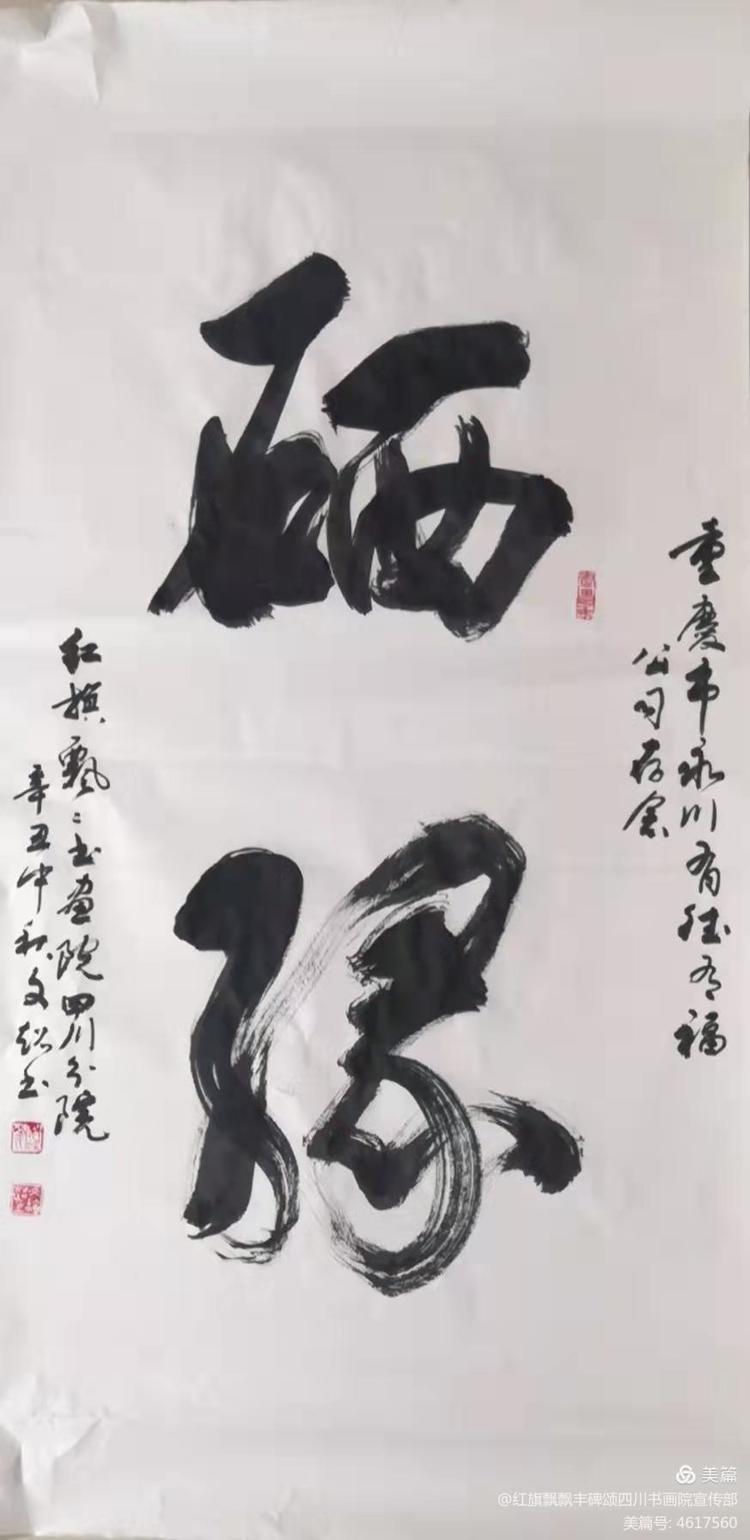 硒缘
重庆市永川有有福
公司存念
红旗飘〻书画院四川分院
辛丑中秋文超书
美篇
@红旗飘飘丰碑颂四川书画院宣传部
美篇号: 4617560